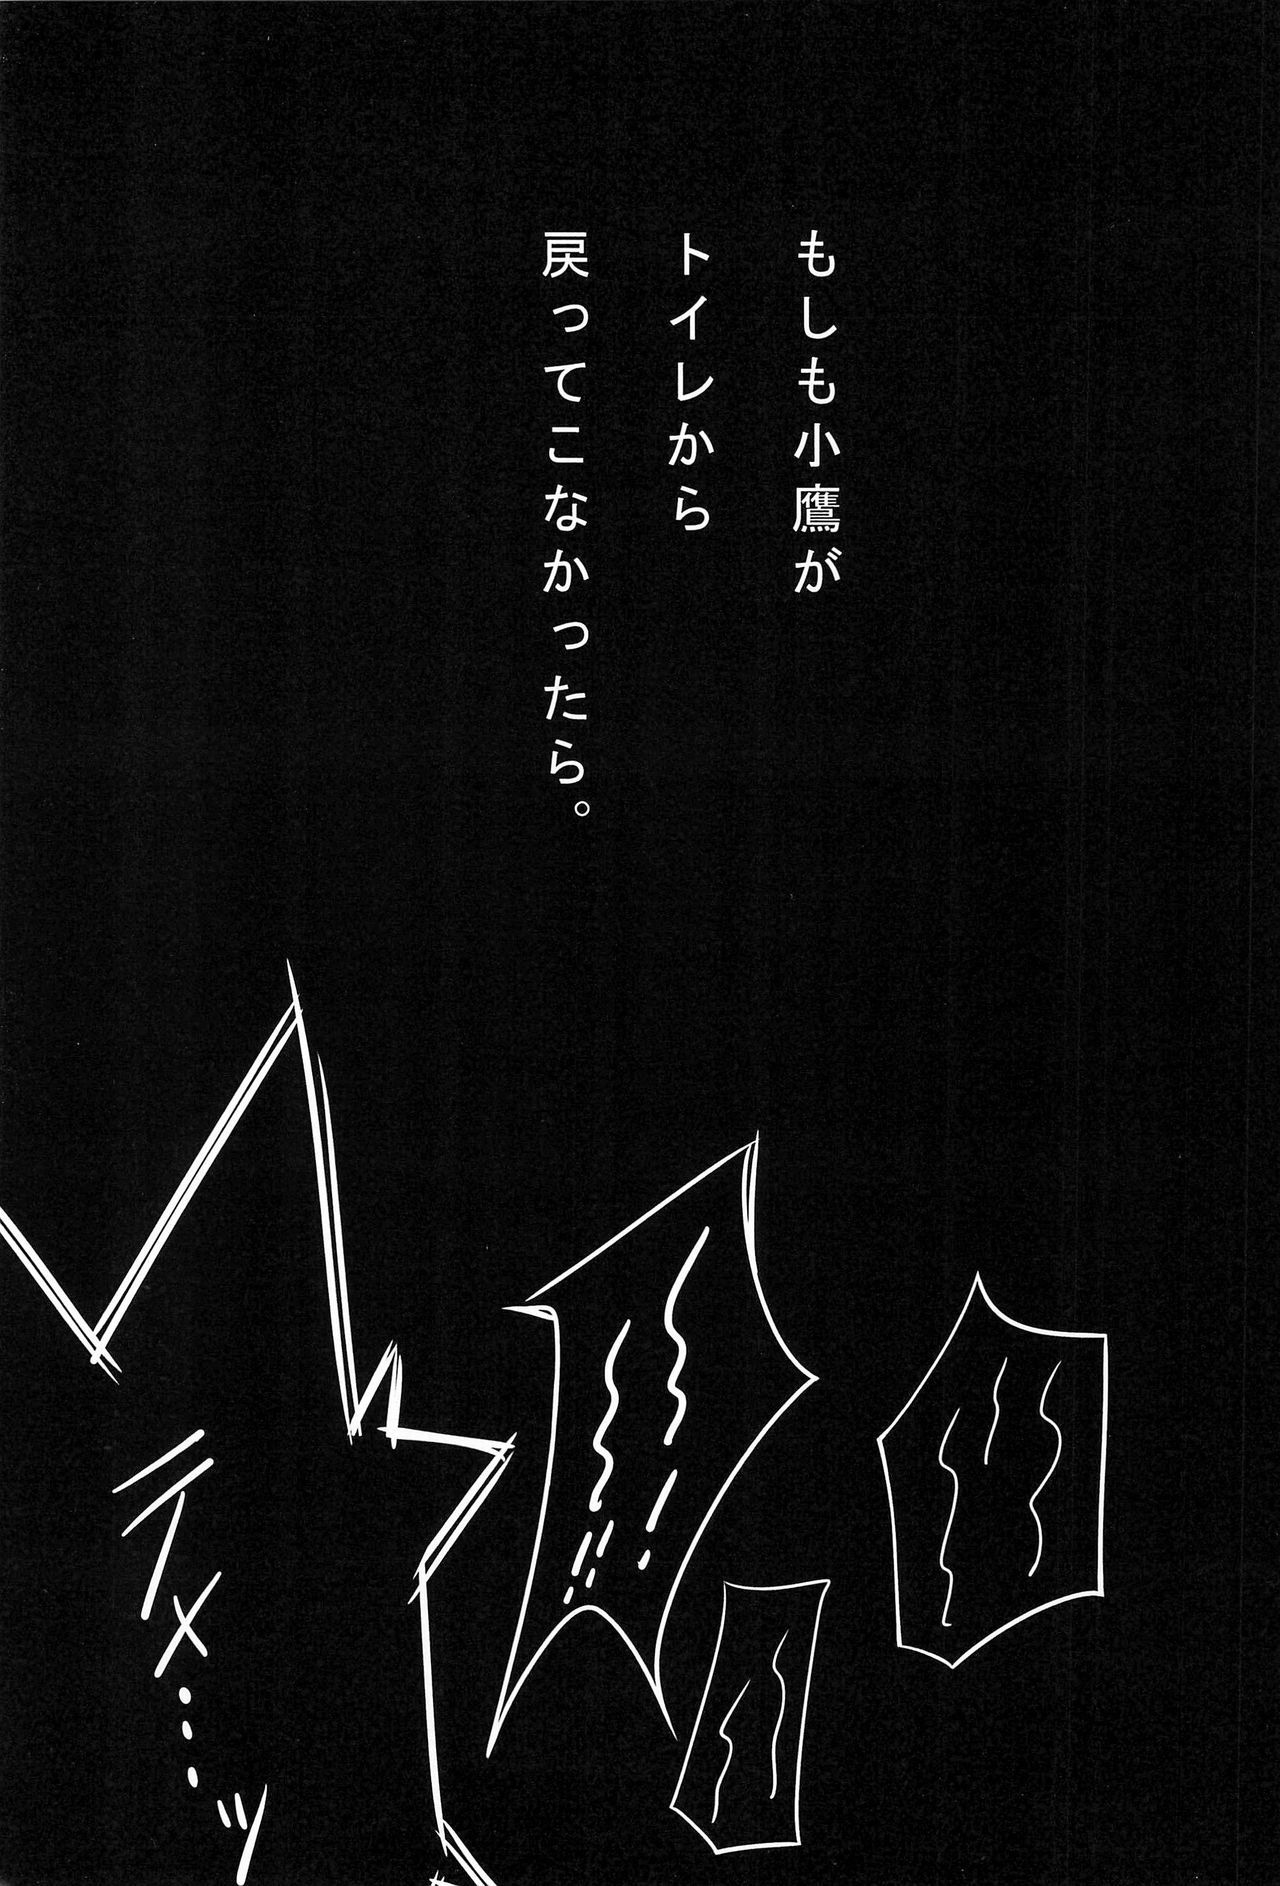 もしも小鷹が
トイレから
戻ってこなかったら。
テメ…ッ